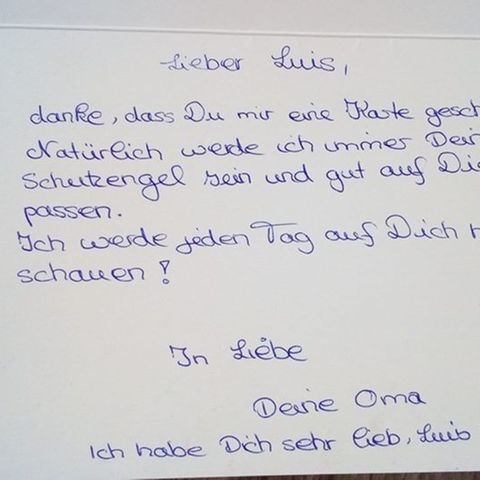 Lieber Luis,
danke, dass Du mir eine Karte gesch
Natürlich werde ich immer Dein
Schutzengel sein und gut auf Di
passen.
Ich werde jeden Tag auf Dich
schauen!
In Liebe
Deine Oma
Ich habe Dich sehr lieb, Luis